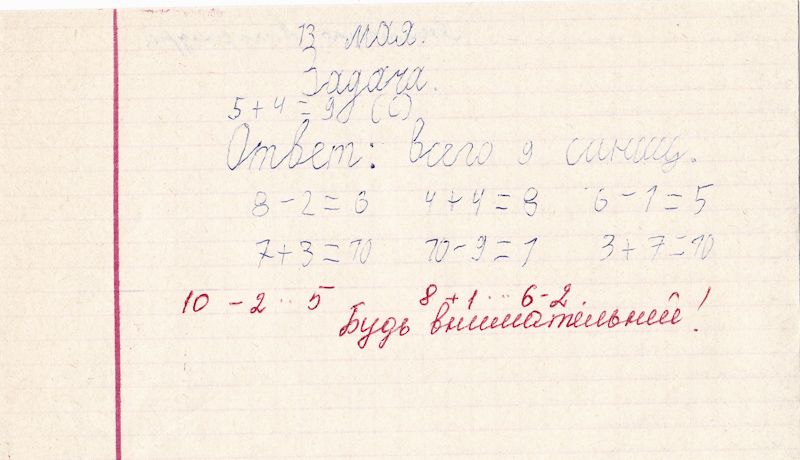 13 мая.
Задача.
5+4=9 (с)
Ответ: всего 9 синиц.
8-2=6 4+4=8 6-1=5
7+3=10 10-9=1 3+7=10
10-2 .. 5 8+1 ... 6-2
Будь внимательней!